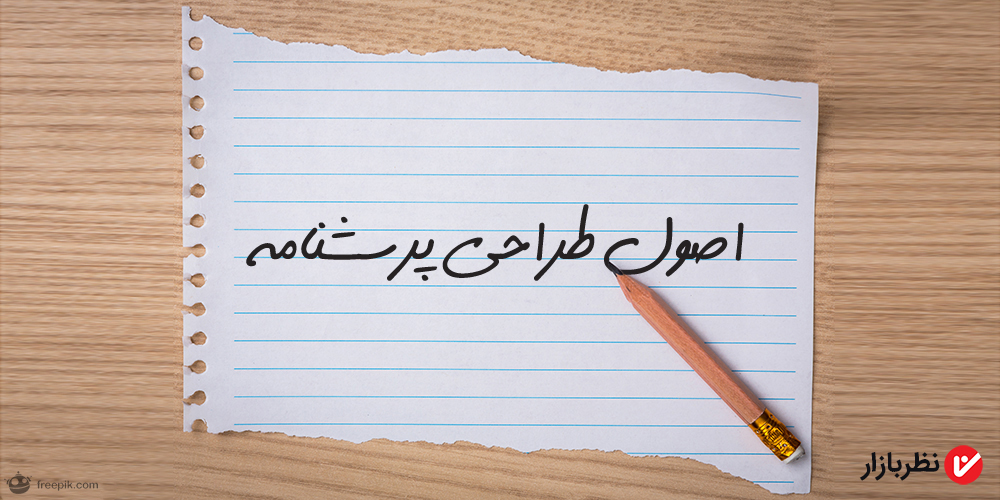 اصول طراحی پرسشنامه
نظربازار
freepik.com